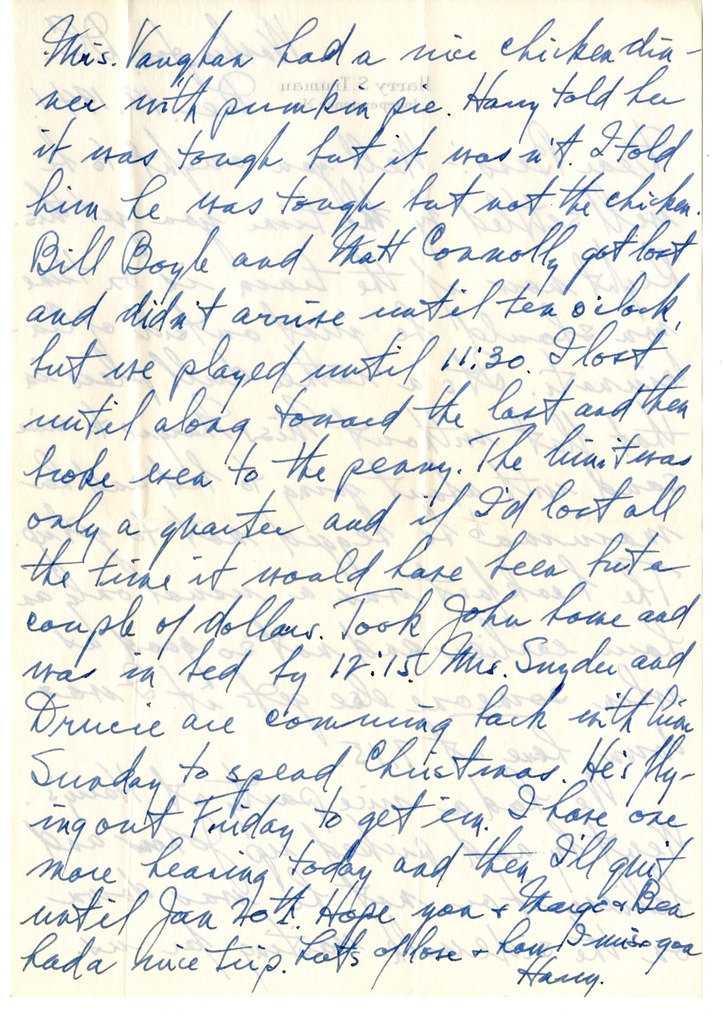 Mrs. Vaughan had a nice chicken din-
ner with pumkin pie. Harry told her
it was tough but it was n't. I told
him he was tough but not the chicken.
Bill Boyle and Matt Connolly got lost
and didn't arrive until ten o'clock,
but we played until 11:30. I lost
until along toward the last and then
broke even to the penny. The limit was
only a quarter and if I'd lost all
the time it would have been but a
couple of dollars. Took John home and
was in bed by 12:15. Mrs. Snyder and
Drucie are comming back with him
Sunday to spend Christmas. He's fly-
ing out Friday to get 'em. I have one
more hearing today and then I'll quit
until Jan 20th. Hope you & Marge & Ben
had a nice trip. Lots of love & how I miss you
Harry.